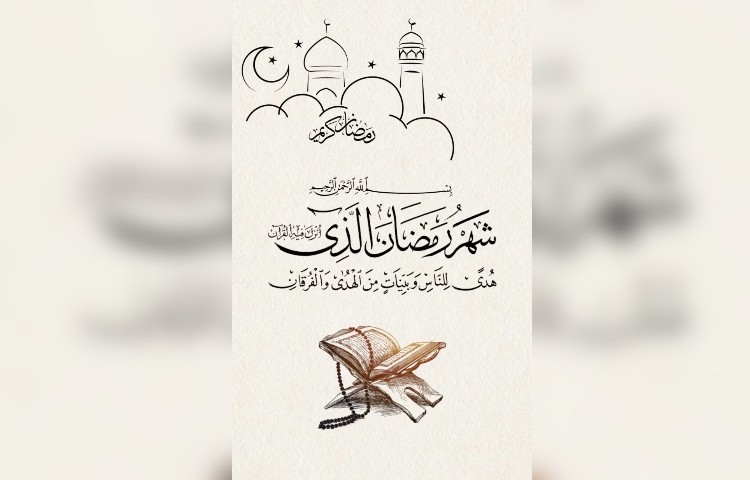 رمضان كريم
بِسْمِ اللَّهِ الرَّحْمَٰنِ الرَّحِيمِ
شَهْرُ رَمَضَانَ الَّذِىٓ أُنْزِلَ فِيهِ الْقُرْآنُ
هُدًى لِلنَّاسِ وَبَيِّنَاتٍ مِنَ الْهُدَىٰ وَالْفُرْقَانِ